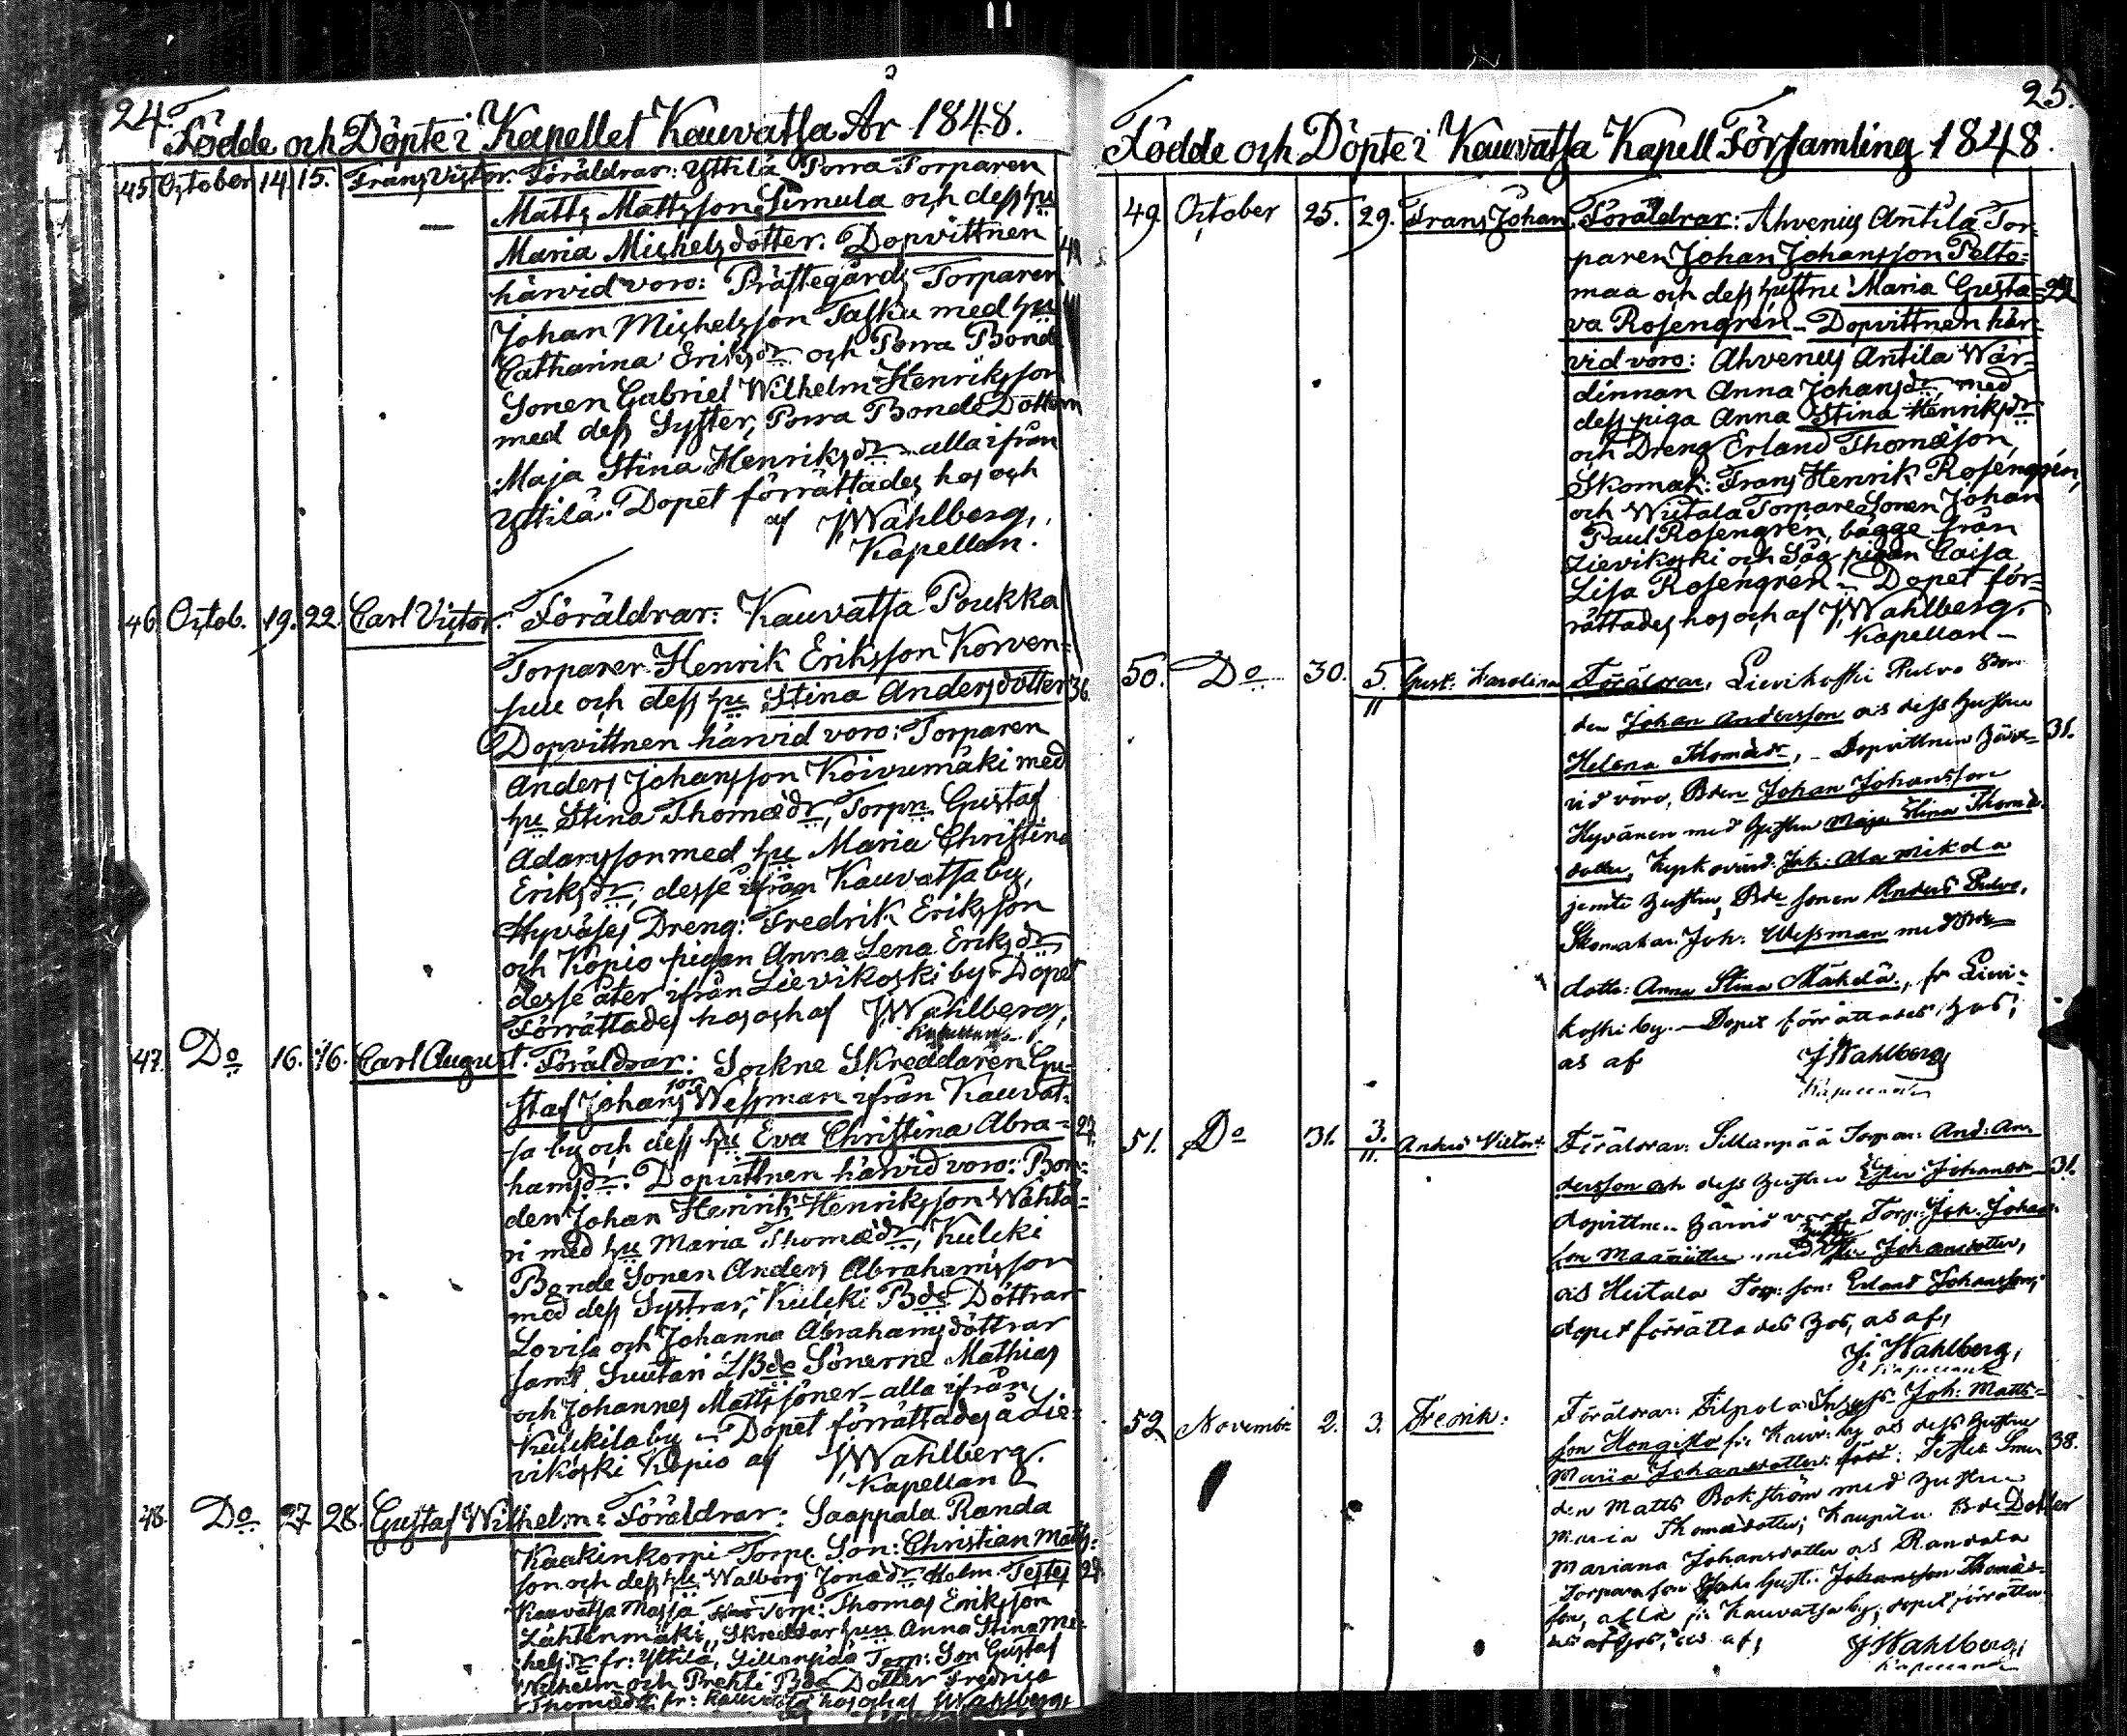 24.
Födde och Döpte i Kapellet Kauvatsa År 1848.
45. October 14. 15. Frans Victor. Föräldrar: Yttilä Porra Torparen
Matts Mattsson Simula och dess hu
Maria Michelsdotter. Dopvittnen
härvid voro: Prästegårds Torparen
Johan Michelsson Tasku med hu
Catharina Eriksdr och Porra Bonde
Sonen Gabriel Wilhelm Henriksson
med dess Syster, Porra BondeDottern
Maja Stina Henriksdr alla ifrån
Yttilä. Dopet förrättades hos och
af J Wahlberg,
Kapellan.
46. Octob. 19. 22. Carl Victor. Föräldrar: Kauvatsa Poukka
Torparen Henrik Eriksson Korven-
suu och dess hu Stina Andersdotter 36.
Dopvittnen härvid voro: Torparen
Anders Johansson Koivumäki med
hu Stina Thomædr, Torpn Gustaf
Adamsson med hu Maria Christina
Eriksdr, desse ifrån Kauvatsa by,
Hyväses Dreng: Fredrik Eriksson
och Kopio pigan Anna Lena Eriksdr
desse åter ifrån Lievikoski by. Dopet
Förrättades hos och af J Wahlberg,
Kapellan.
47. Do 16. 16. Carl August. Föräldrar: Sockne Skreddaren Gu-
staf Johans son Wessman ifrån Kauvat-
sa by och dess hu Eva Christina Abra- 27.
hamsdr. Dopvittnen härvid voro: Bon-
den Johan Henrik Henriksson Wahto-
ri med hu Maria Thomædr, Kuleki
Bonde Sonen Anders Abrahamsson
med dess Systrar, Kuleki Bde Döttrar
Lovisa och Johanna Abrahamsdöttrar
samt Suutari Bde Sönerne Mathias
och Johannes Mattssöner alla ifrån
Kulekila by. Dopet förrättades å Lie-
vikoski Kopio af J Wahlberg.
Kapellan
48. Do 27 28. Gustaf Wilhelm: Föräldrar: Saappala Randa
Kaakinkorpi Torpe Son: Christian Matts-
son och dess hu Walborg Jonædr Holm. Testes 27.
Kauvatsa Massa Torp: Thomas Eriksson
Lähtenmäki, Skreddar hun Anna Stina Mi-
chelsdr fr: Yttilä, Sillanpää Torp: Son Gustaf
Wilhelm och Prehti Bde Dotter Fredrica
Thomædr fr: Kauvatsa hos och af J Wahlberg.
25.
Födde och Döpte i Kauvatsa Kapell Församling 1848.
49. October 25. 29. Frans Johan. Föräldrar: Ahvenus Antila Tor-
paren Johan Johansson Pelto-
maa och dess hustru Maria Gusta-
va Rosengrén. Dopvittnen här-
vid voro: Ahvenus Antila Wär-
dinnan Anna Johansdr med
dess piga Anna Stina Henriksdr
och Dreng Erland Thomæson,
Skomak: Frans Henrik Rosengrén,
och Wiitala Torpare Sonen Johan
Paul Rosengrén, bägge från
Lievikoski och Säg pigan Caisa
Lisa Rosengrén. Dopet för-
rättades hos och af J Wahlberg,
Kapellan
50. Do 30. 5. 11 Gust: Karolina Föräldrar, Lievikoski Pulvo Bon-
den Johan Andersson och dess hustru
Helena Thomædr, Dopvittnen härr- 31.
vid voro, Bden Johan Johansson
Hyvänen med hustru Maja Stina Thomæ
dotter, Kyrkovärd: Joh: Ala Mikola
jemte hustru, Bde sonen Anders Pulvo,
Skomakar. Joh: Wessman med Bde
dotter: Anna Stina Mäkelä, fr Lievi-
koski by. Dopet förrättades hos,
as af J Wahlberg
Kapellan
51. Do 31. 3. 11. Anders Viktor: Föräldrar: Sillanpää Torpar: And: An-
dersson och dess hustru Johansdr 31.
dopvittn: härvid voro Torp: Joh. Johans-
son med Johansdotter,
as Torp: son: Erland Johansson,
dopet förrättades hos, as af,
J. Wahlberg,
Kapellan
52. November 2. 3. Fredrik: Föräldrar: Filpola Joh: Matts-
son Hongisto fr: Kauv: by as dess hustru 38.
Maria Johansdotter:
den Matts Bokström med hustru
Maria Thomædotter, Kaupila Bde Dotter
Mariana Johansdotter as Randala
Torpare son Gust: Johansson Thomæs-
son, alla fr: Kauvatsa by, dopet förrätta-
des as af, J Wahlberg,
Kapellan